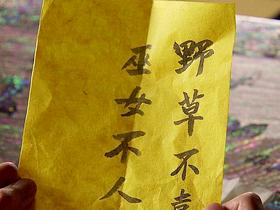 野草不喜
巫女不人